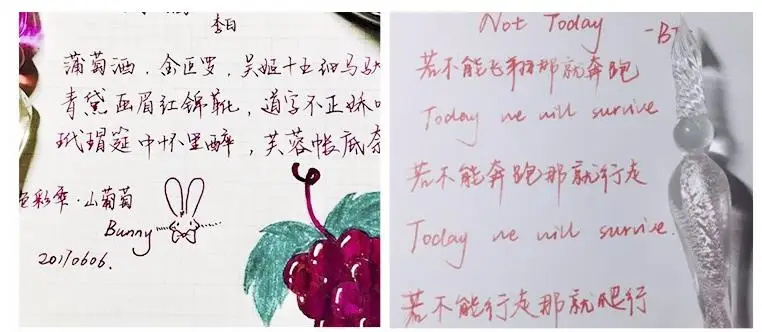 李白
蒲萄酒，金叵罗，吴姬十五细马驮
青黛画眉红锦靴，道字不正娇
玳瑁筵中怀里醉，芙蓉帐底奈
色彩雫·山葡萄
Bunny
20170606.
Not Today
-BT
若不能飞翔那就奔跑
Today we will survive
若不能奔跑那就行走
Today we will survive.
若不能行走那就爬行